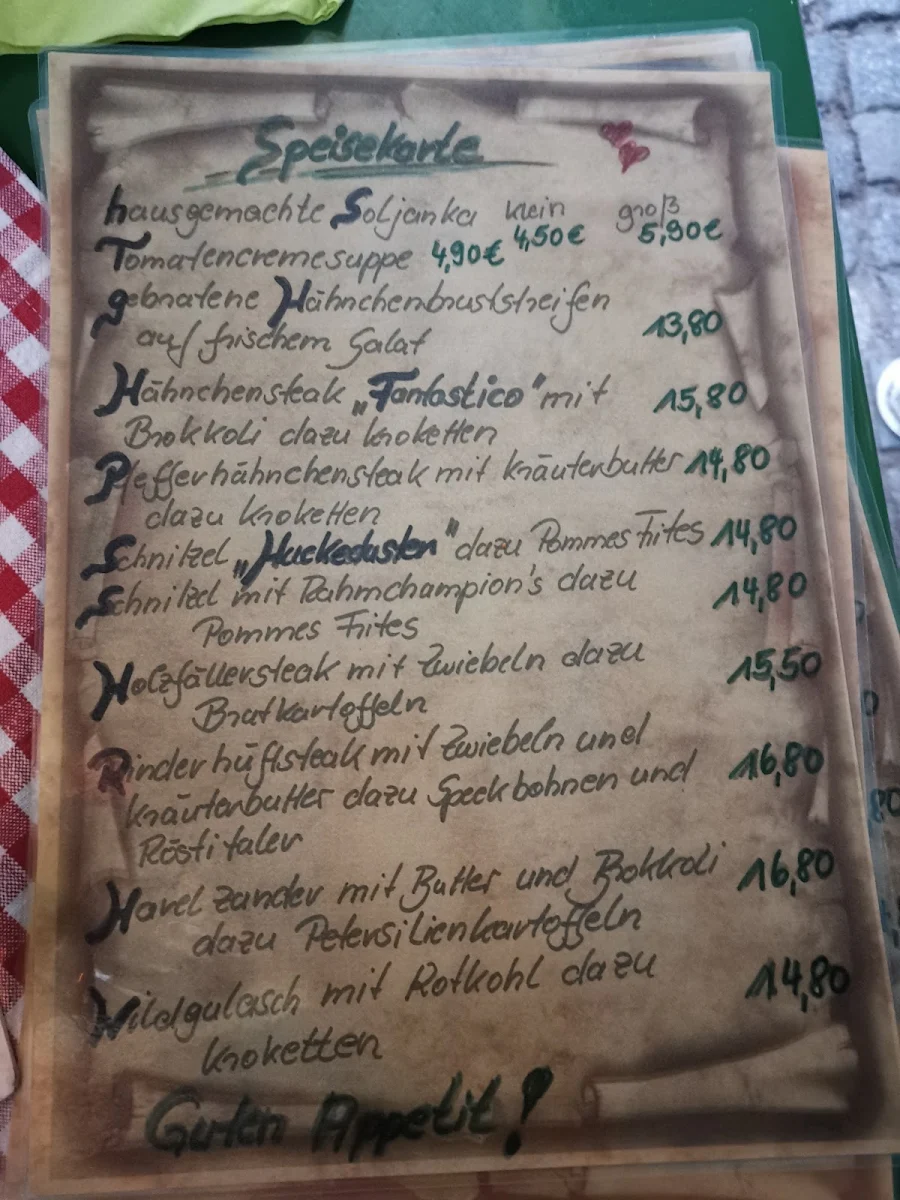 Speisekarte
hausgemachte Soljanka klein groß
4,50€ 5,90€
Tomatencremesuppe 4,90€
gebratene Hähnchenbruststreifen
auf frischem Salat 13,80
Hähnchensteak „Fantastico" mit 15,80
Brokkoli dazu Kroketten
Pfefferhähnchensteak mit Kräuterbutter 14,80
dazu Kroketten
Schnitzel „Huckedusten" dazu Pommes Frites 14,80
Schnitzel mit Rahmchampion's dazu 14,80
Pommes Frites
Holzfällersteak mit Zwiebeln dazu 15,50
Bratkartoffeln
Rinderhüftsteak mit Zwiebeln und
Kräuterbutter dazu Speckbohnen und 16,80
Röstitaler
Havelzander mit Butter und Brokkoli 16,80
dazu Petersilienkartoffeln
Wildgulasch mit Rotkohl dazu 14,80
Kroketten
Guten Appetit!